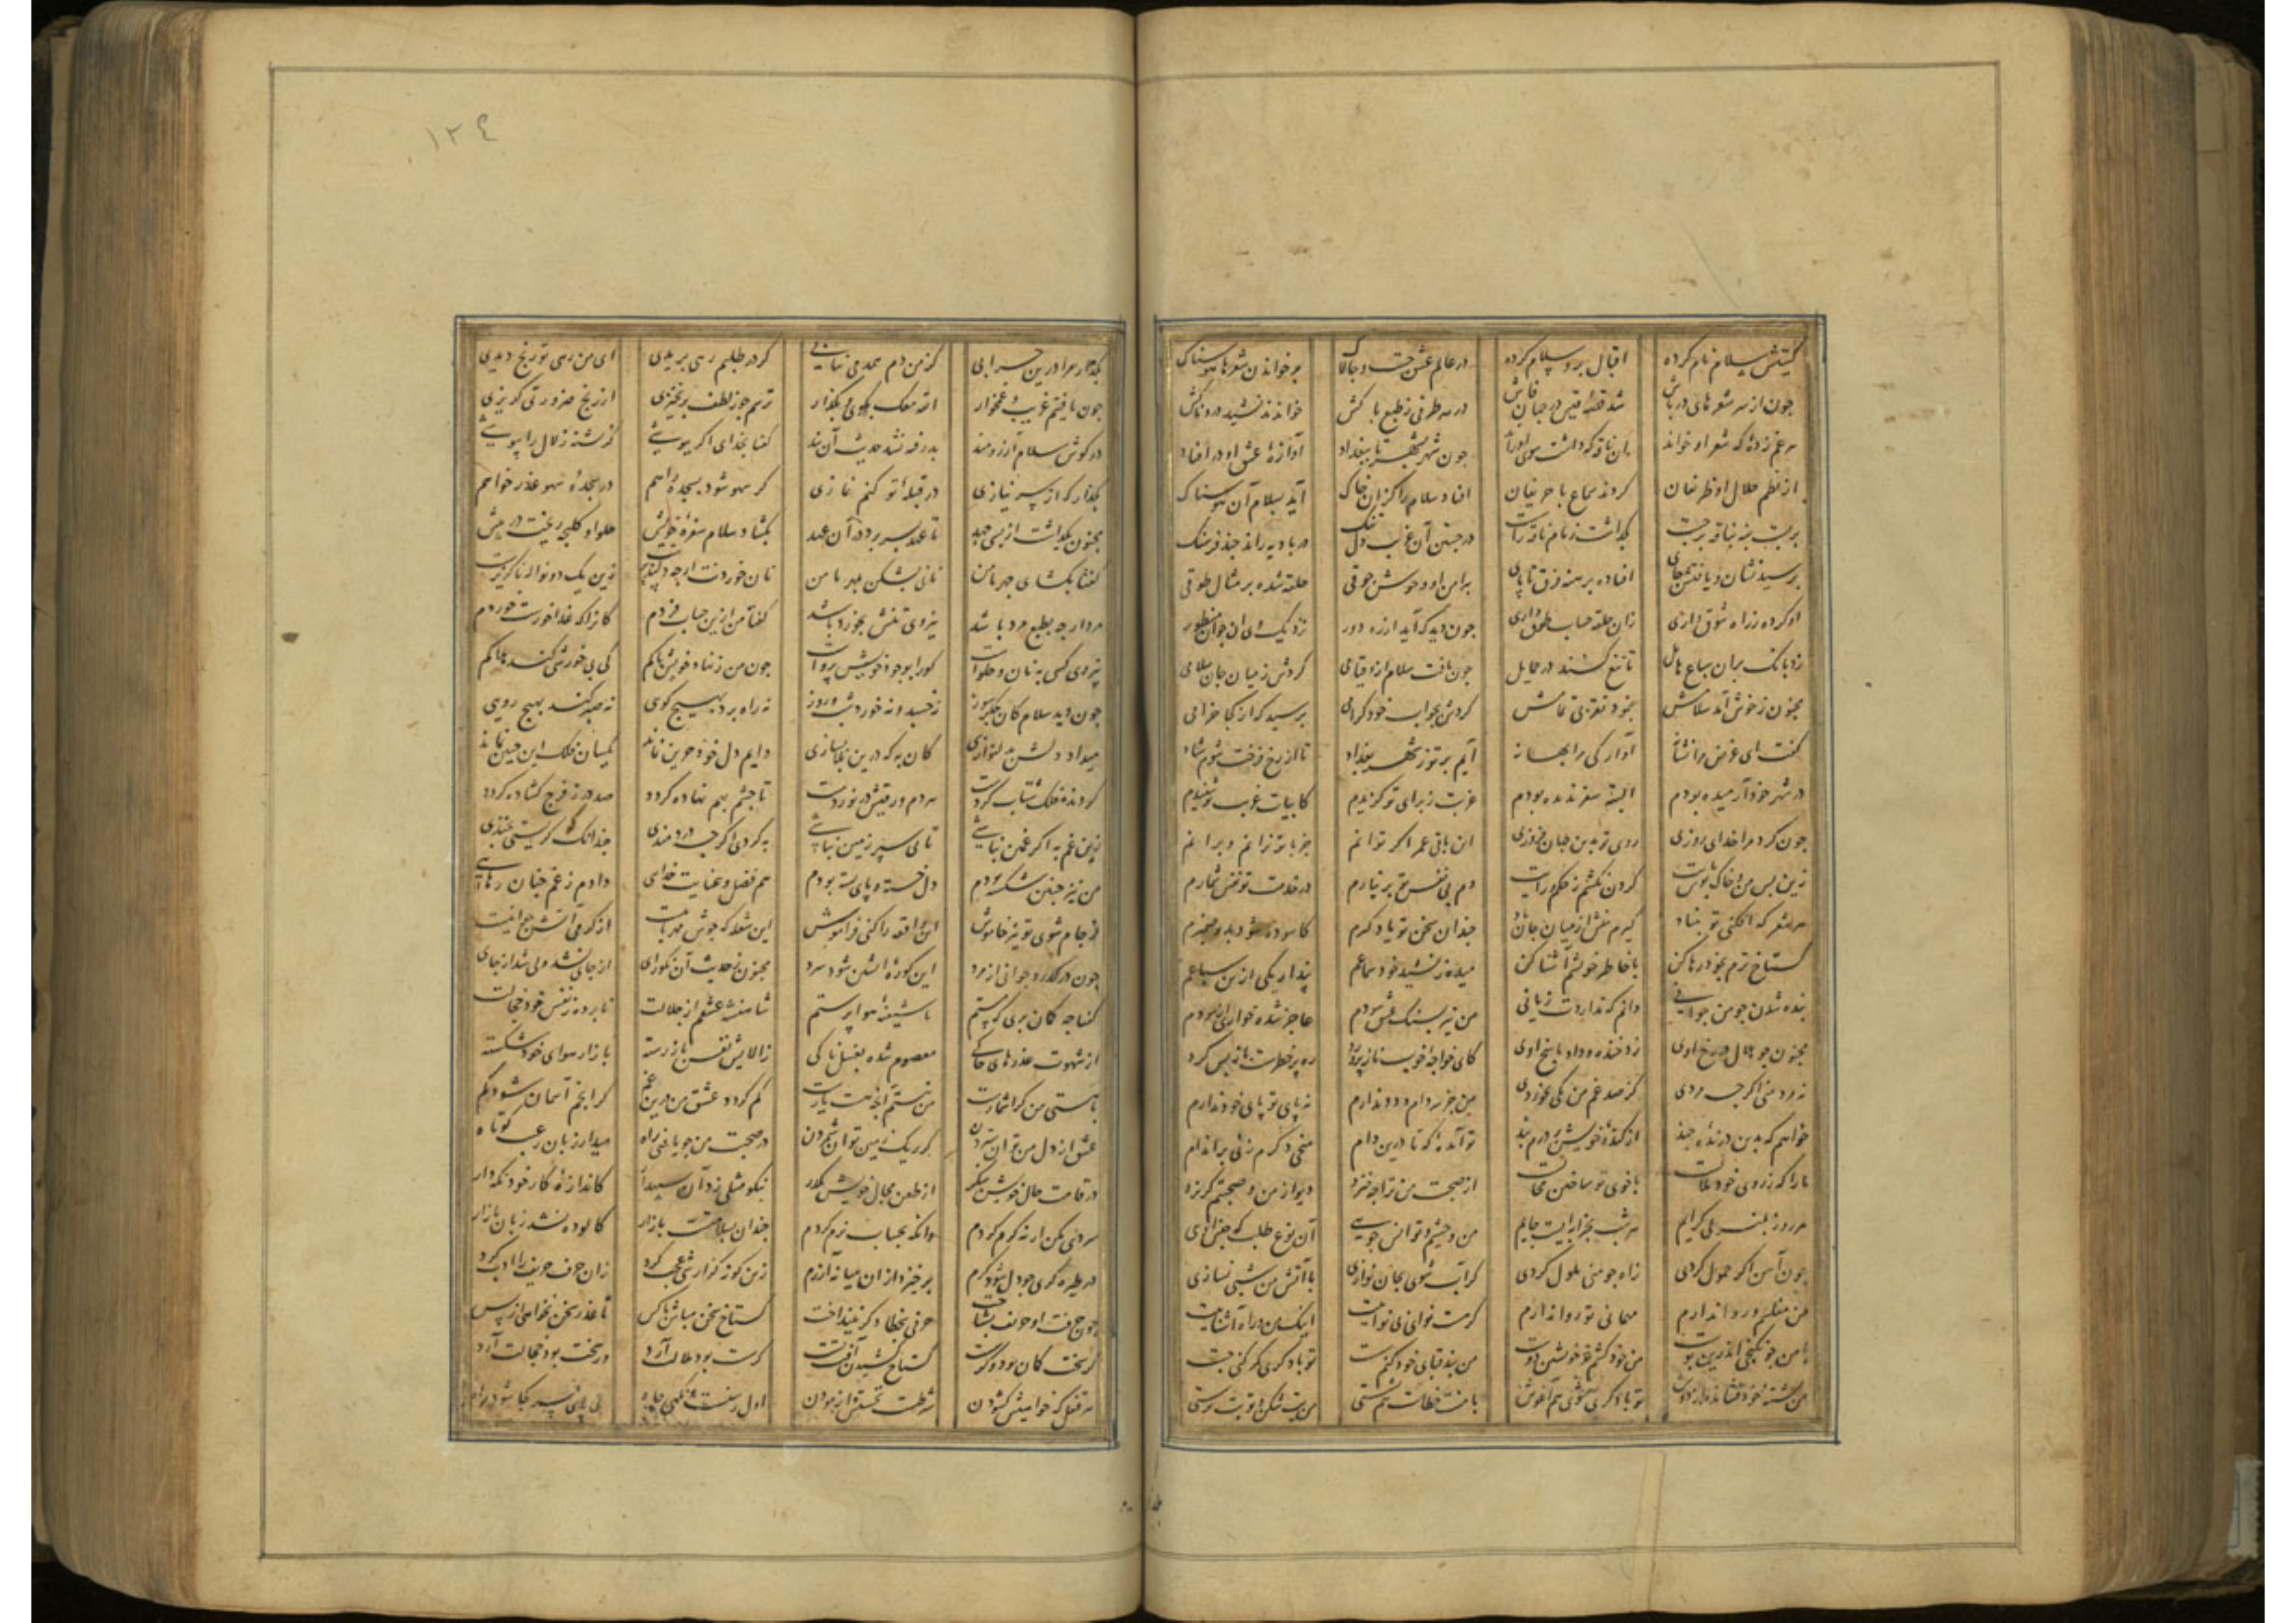 گیتیش سلام نام کرده اقبال برو سلام کرده در عالم عشق چست و چالاک بر خواندن شعرها هوسناک
چون از سر شعرهای درپاش شد قصه قیس در جهان فاش در هر طرفی ز طبع پاکش خواندند نشید دردناکش
هر غم زده که شعر او خواند آن ناقه که داشت سوی او راند چون شهر بشهر تا ببغداد آوازه عشق او در افتاد
از نظم حلال او ظریفان کردند سماع با حریفان افتاد سلام را کزان خاک آید بسلام آن هوسناک
بربست بنه بناقه چست بگذاشت زمام ناقه را سست در جستن آن غریب دلتنگ در بادیه راند چند فرسنگ
پرسید نشان و یافتش جای افتاده برهنه فرق تا پای پیرامن او وحوش جوقی حلقه شده بر مثال طوقی
او کرده ز راه شوق و زاری زان حلقه حساب طوق داری چون دید که آید از ره دور نزدیک وی آن جوان منظور
زد بانگ بران سباع هایل تا تیغ کنند در حمایل چون یافت سلام ازو قیامی کردش ز میان جان سلامی
مجنون ز خوش آمد سلامش بنمود تقربی تمامش کردش بجواب خود گرامی پرسید که از کجا خرامی
گفت ای غرض مرا نشانه آوارگی مرا بهانه آیم بر تو ز شهر بغداد تا از رخ فرخت شوم شاد
در شهر خود آرمیده بودم البته سفر ندیده بودم غربت ز برای تو گزیدم کابیات غریب تو شنیدم
چون کرد مرا خدای روزی روی تو بدین جهان فروزی این باقی عمر اگر توانم جز با تو نرانم و برانم
زین پس من و خاک بوس پایت گردن نکشم ز حکم و رایت دم بی نفس تو بر نیارم در خدمت تو نفس شمارم
هر شعر که افکنی تو بنیاد گیرم منش از میان جان یاد چندان سخن تو یاد گیرم کاسوده شود بدو ضمیرم
گستاخ ترم بخود رها کن با خاطر خویشم آشنا کن میده ز نشید خود سماعم پندار یکی ازین سباعم
بنده شدن چو من جوانی دانم که نداردت زیانی من نیز بسنگ عشق سودم عاجز شده خواری آزمودم
مجنون چو هلال در رخ اوی زد خنده و داد پاسخ اوی کای خواجه خوب ناز پرورد ره پر خطرست باز پس گرد
نه مرد منی اگرچه مردی کز صد غم من یکی نخوردی من جز سر دام و دد ندارم نه پای تو پای خود ندارم
خواهم که بدین درنده چند از کنده خویش بر درم بند تو آمده که تا درین دام میخی دگرم زنی بر اندام
ما را که ز روی خود ملالست با خوی تو ساختن محالست از صحبت من ترا چه خیزد دیو از من و صحبتم گریزد
هر روز بمنزلی گرایم هر شب بخرابه ایست جایم من وحشیم و تو انس جویی آن نوع طلب که جنس اویی
چون آهن اگر حمول گردی زاه چو منی ملول گردی گر آب شوی بجان نوازی با آتش من شبی نسازی
من مفلسم و روا ندارم مهمانی تو روا ندارم گرت نوای بی نواییست اینک من و راه آشناییست
با من تو نگنجی اندرین پوست من خود کشم و تو خویشتن دوست من بند قبای خود کنم سست تو با دگری گره کنی چست
من خود فشانده بر دوش تو با دگری شوی هم آغوش با منت خطاست هم نشستی من بت شکن و تو بت پرستی
۱۲٤
بگذار مرا درین خرابی کز من دم همدمی نیابی گر در طلبم رهی بریدی ای من رهی تو رنج دیدی
چون یافتیم غریب و غمخوار الله معک بگوی و بگذار ترسم چو ز لطف بر نخیزی از رنج ضرورتی گریزی
در گوش سلام آرزومند پذرفته نشد حدیث آن پند گفتا بخدای اگر کز تشنه زلال را
بگذار که از سر نیازی در قبله تو کنم نمازی گر سهو شود بسجده راهم در سجده سهو عذر خواهم
مجنون بگذاشت از بسی جهد تا عهد بسر برد در آن عهد بگشاد سلام سفره خویش حلوا و کلیچه ریخت در پیش
گفتا بگشای چهر با من نانی بشکن بمهر با من نان خوردنت ارچه دلپذیرست زین یک دو نواله ناگزیرست
مرد ارچه بطبع مرد باشد نیروی تنش بخورد باشد گفتا من ازین حساب فردم کانرا که غذا خورست خوردم
نیروی کسی به نان و حلواست کو را بوجود خویش پرواست چون من ز نهاد خویش پاکم کی بی خورشی کند هلاکم
چون دید سلام کان جگرسوز نه خسبد و نه خورد شب و روز نه راه برد بهیچ کوی نه صبر کند بهیچ رویی
میداد دلش بدلنوازی کان به که درین بلا بسازی دایم دل خود حزین نماند یکسان فلک این چنین نماند
گردنده فلک شتاب گردست هردم ورقیش در نوردست تا چشم بهم نهاده گردد صد در ز فرج گشاده گردد
زین غم به اگر غمین نباشی تا پی سپر زمین نباشی به گردی اگرچه دردمندی چندانک گریستی بخندی
من نیز چنین شکسته بودم دل خسته و پای بسته بودم هم فضل و عنایت خدای دادم ز غم چنان رهایی
فرجام شوی تو نیز خاموش این واقعه را کنی فراموش این شعله که جوش مهربانیست از گرمی آتش جوانیست
چون درگذرد جوانی از مرد این کوره آتشین شود سرد مجنون ز حدیث آن نکورای از جای نشد ولی شد از جای
گفتا چه گمان بری که مستم یا شیفته هواپرستم شاهنشه عشقم از جلالت نابرده ز نفس خود خجالت
از شهوت عذرهای خاکی معصوم شده بغسل پاکی زالایش نفس باز رسته بازار هوای خود شکسته
با هستی من که در شمارست من نیستم آنچه هست یارست کم گردد عشق من درین غم گر انجم آسمان شود کم
عشق از دل من توان ستردن گر ریگ زمین توان شمردن در صحبت من چو یافتی راه میدار زبان ز عیب کوتاه
در قامت حال خویش بنگر از طعن محال خویش بگذر نیکو مثلی زد آن سپهدار کاندازه کار خود نگه دار
سردی مکن ار نه گرم گردم وانگه بحساب نرم گردم چندان بازار کالوده نشد زبان بازار
در طیره گری چو دل شود گرم برخیزد از ان میانه آزرم زین گونه گزارشی عجب کرد زان حرف حریف را ادب کرد
چون حرفت او حریف بشناخت حرفی بخطا دگر نینداخت گستاخ سخن مباش با کس تا عذر سخن نخواهی از پس
گر سخت کمان بود وگر سست گستاخ کشیدن آفت تست گر سست بود ملالت آرد ور سخت بود خجالت آرد
هر قفل که خواهیش گشودن شرطست نخستش آزمودن اول